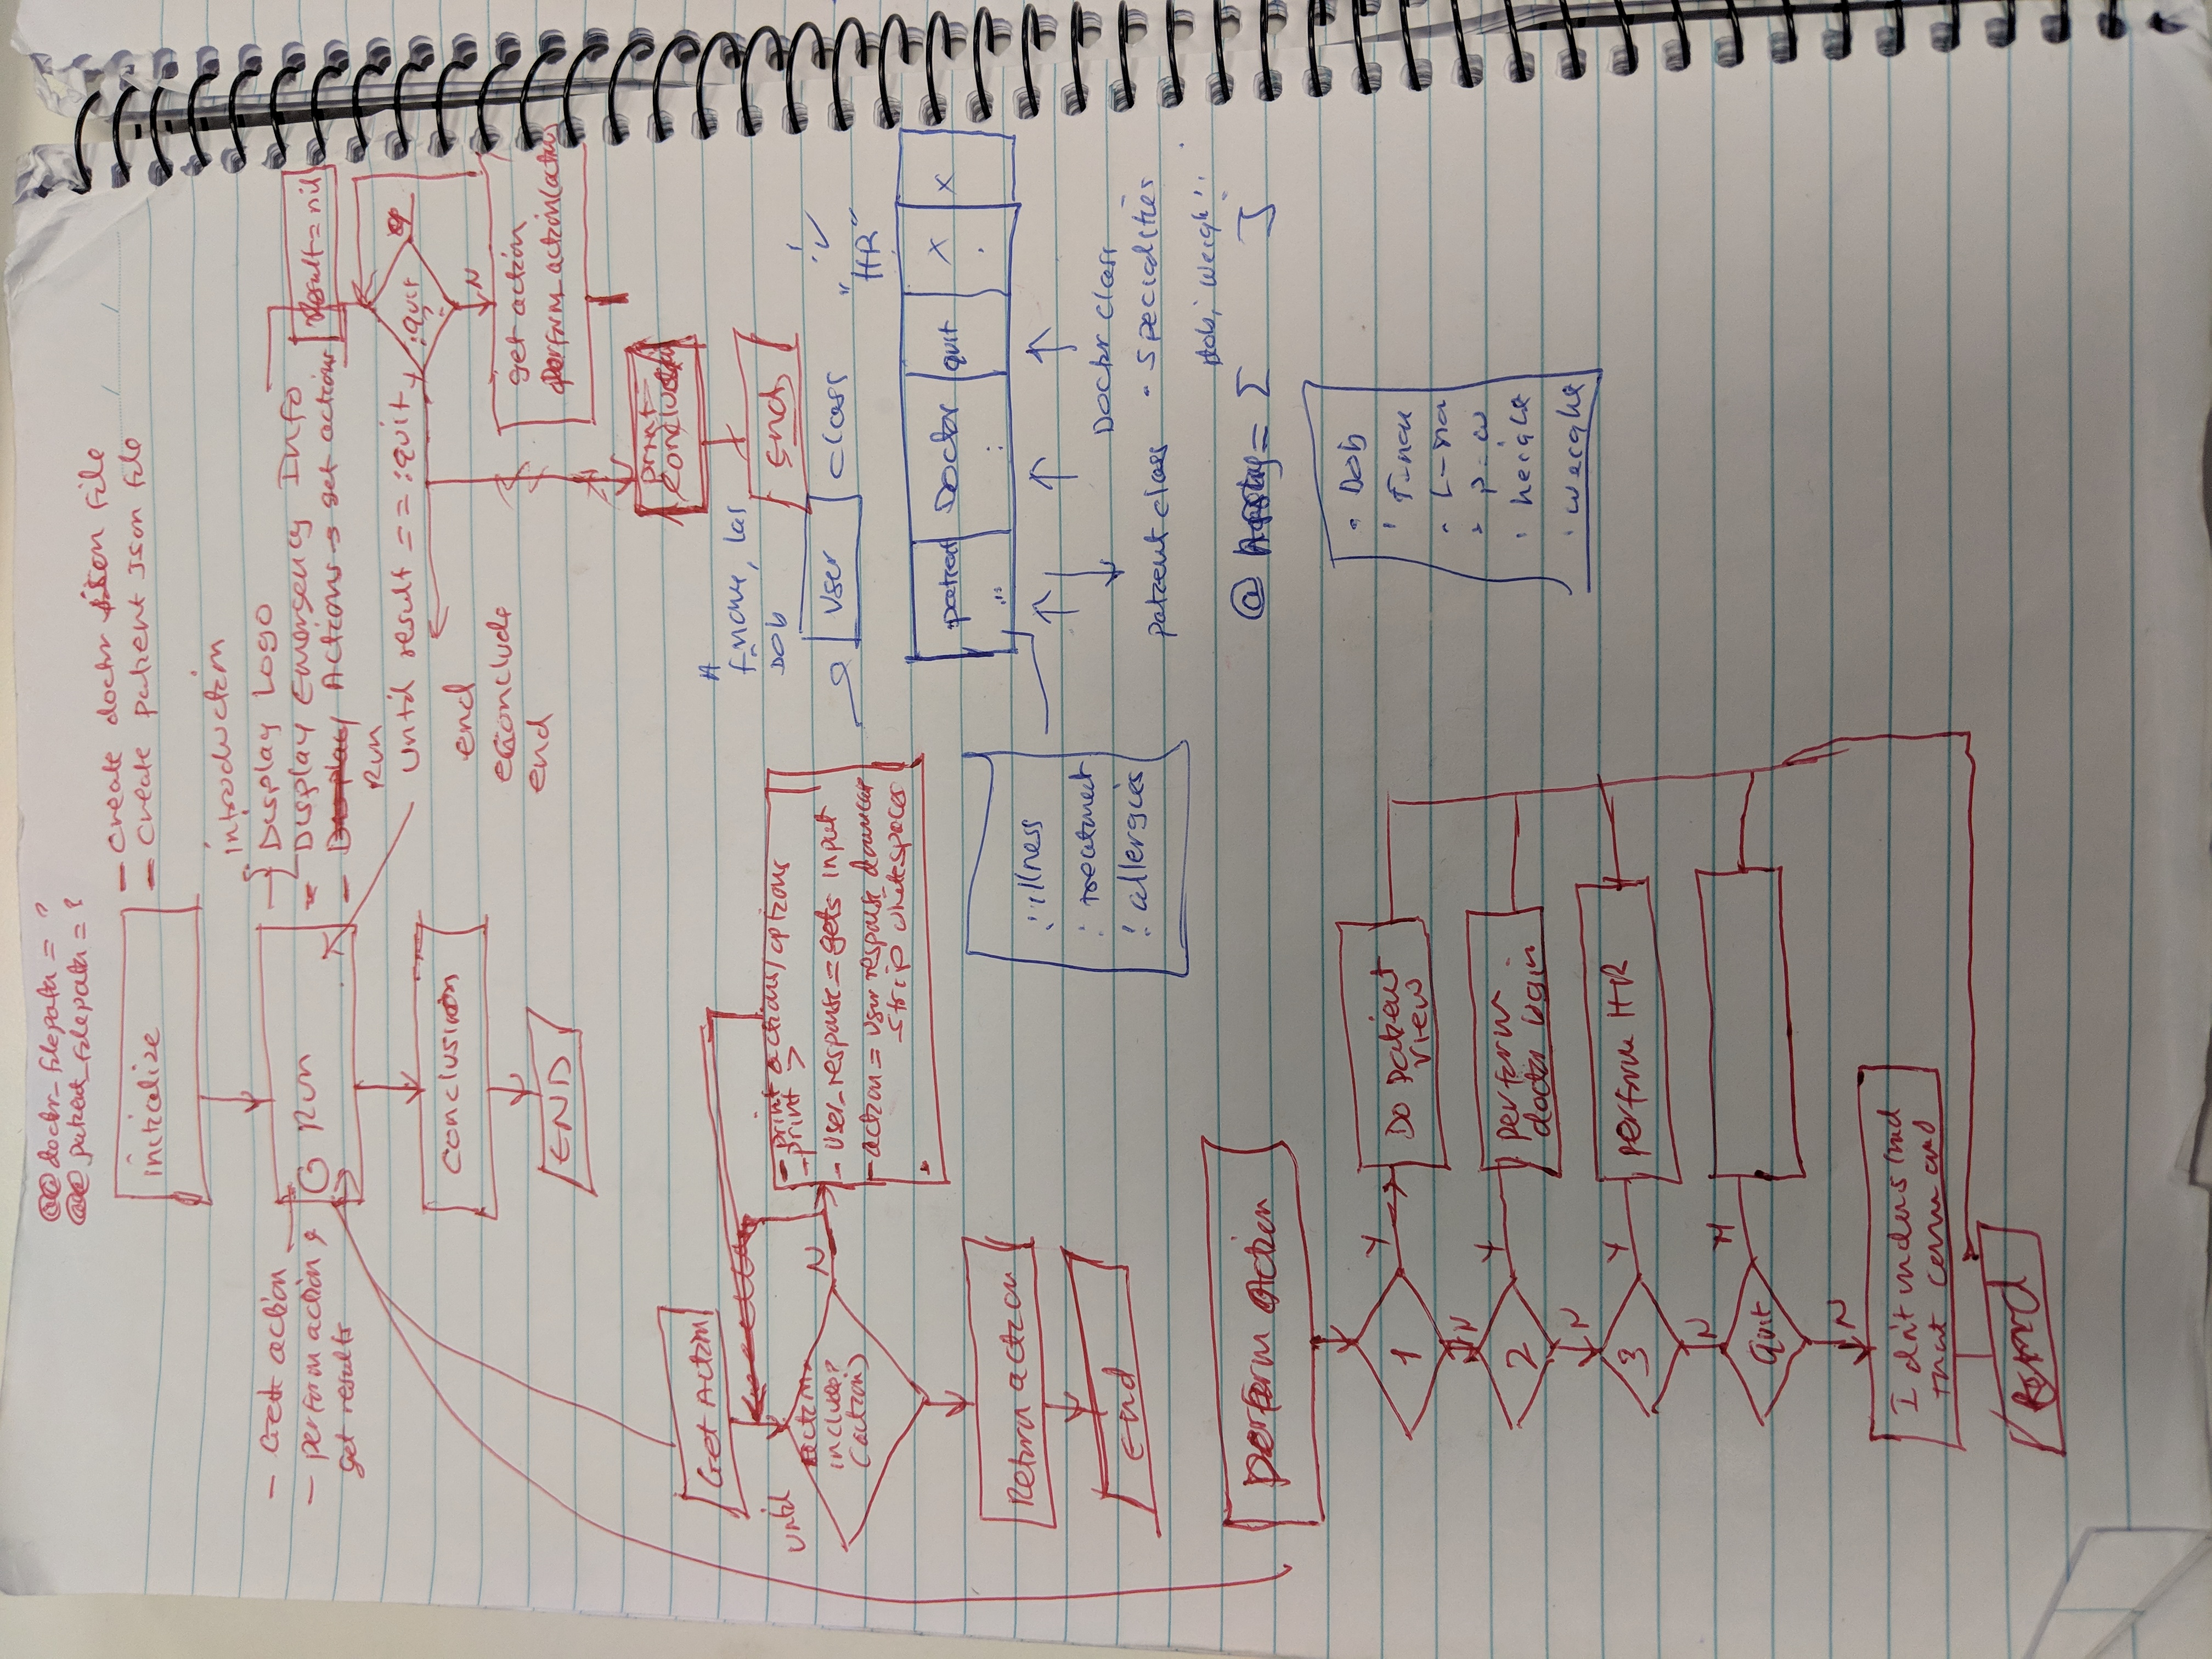 @@doctor_filepath = ?
@@patient_filepath = ?
initialize
- create doctor Json File
- create patient Json file
- Get action
- perform action &
get results
Run
introduction
- Display Logo
- Display Emergency Info
- Display Actions → get actions
Run
until result == :quit
end
conclude
end
Conclusion
END
Result = nil
:quit
Y
N
get action
perform_action(action)
print
conclusion
End
Get Action
until
action
includes?
(action)
N
- print actions/options
- print >
- user_response = gets input
- action = user response downcase
- strip whitespaces
Return action
End
f_name, las
DOB
User
class
"HR"
patient
Doctor
quit
X
X
Doctor class
patient class
• specialities
dob, weigh
@ Array = [
]
• Dob
• F-nam
• L-na
• p-w
• height
• weight
: illness
: treatment
: allergies
perform Action
1
Y
Do patient
view
N
2
Y
perform
doctor login
N
3
Y
perform HR
N
Quit
N
I don't understand
that command
End